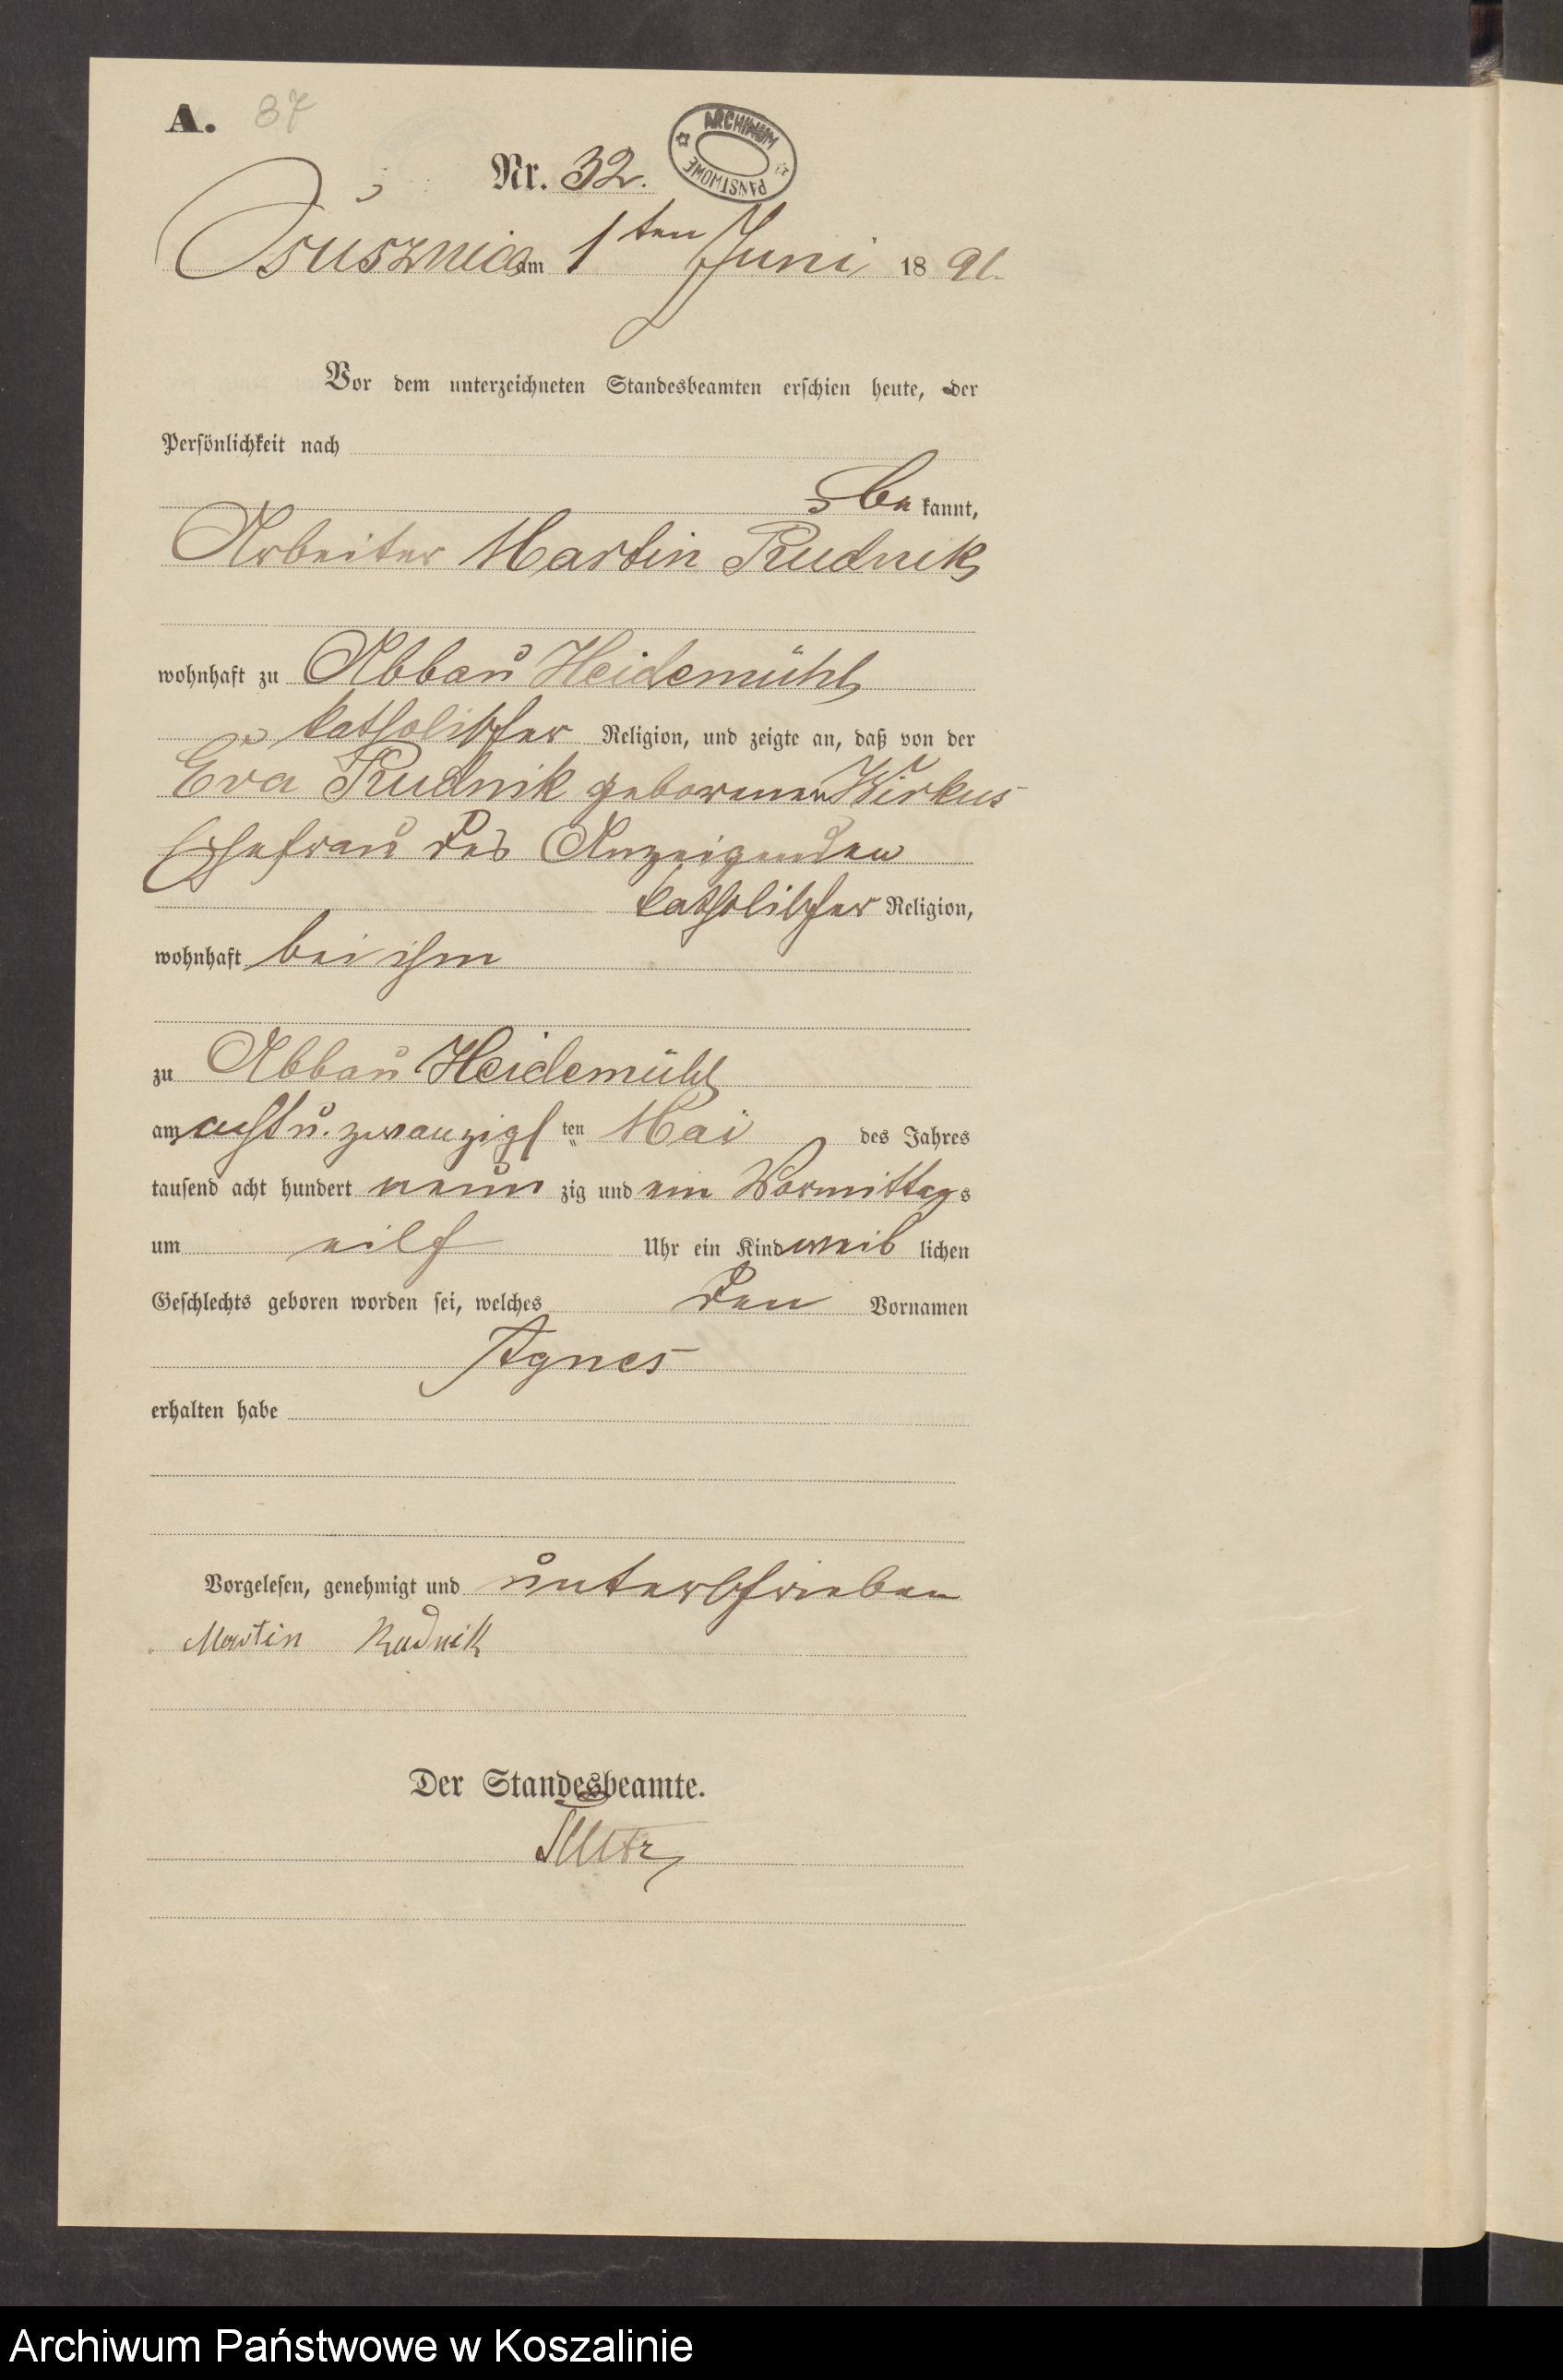 A. 87
Nr. 32.
ARCHIWUM PAŃSTWOWE
am 1ten Juni 1891.
Vor dem unterzeichneten Standesbeamten erschien heute, der
Persönlichkeit nach
bekannt,
Arbeiter Martin Rudnik
wohnhaft zu Abbau Heidemühl
katholischer Religion, und zeigte an, daß von der
Eva Rudnik geborenen Wirkus
Ehefrau des Anzeigenden
katholischer Religion,
wohnhaft bei ihm
zu Abbau Heidemühl
am acht u. zwanzigsten Mai des Jahres
tausend acht hundert neunzig und ein Vormittags
um eilf Uhr ein Kind weiblichen
Geschlechts geboren worden sei, welches den Vornamen
Agnes
erhalten habe
Vorgelesen, genehmigt und unterschrieben
Martin Rudnik
Der Standesbeamte.
Archiwum Państwowe w Koszalinie